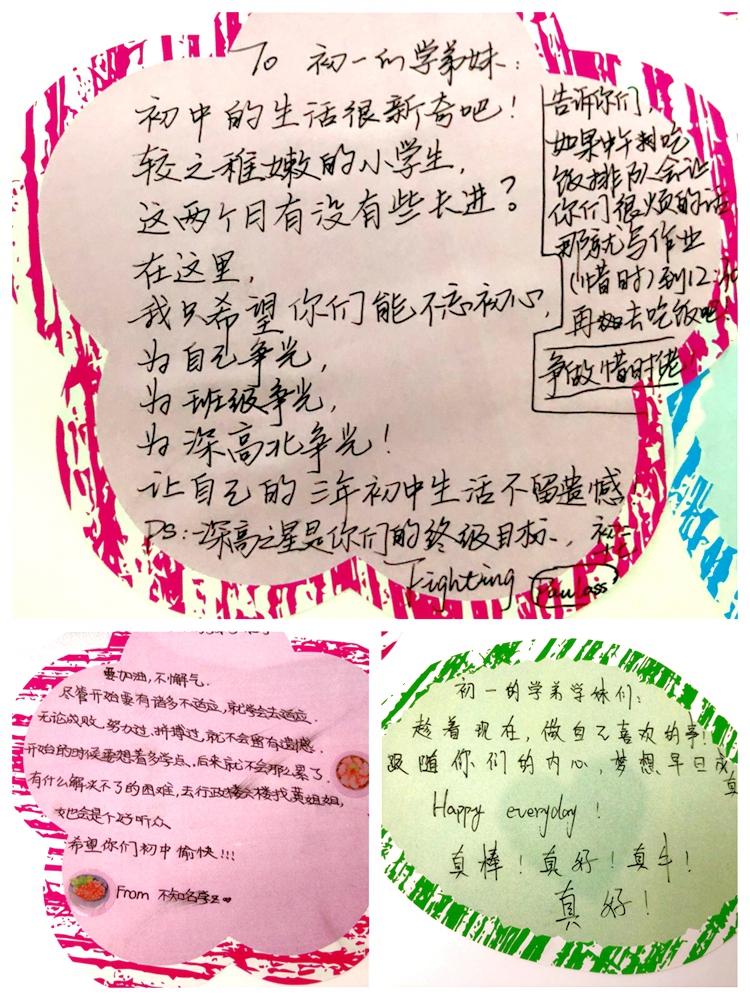 To 初一的学弟妹：
初中的生活很新奇吧！
较之稚嫩的小学生，
这两个月有没有些长进？
在这里，
我只希望你们能不忘初心，
为自己争光，
为班级争光，
为深高北争光！
让自己的三年初中生活不留遗憾！
PS：深高之星是你们的终级目标，
Fighting
告诉你们
如果中午刚吃
饭排队会让
你们很烦的话
那就写作业
（惜时）到12:
再去吃饭吧
争做惜时佬！
要加油，不懈气。
尽管开始要有诸多不适应，就学会去适应。
无论成败，努力过，拼搏过，就不会留有遗憾。
开始的时候要想着多学点，后来就不会那么累了。
有什么解决不了的困难，去行政楼找黄姐姐，
她也会是个好听众
希望你们初中愉快!!!
From 不知名学
初一的学弟学妹们：
趁着现在，做自己喜欢的事！
跟随你们的内心，梦想早日成真
Happy everyday！
真棒！真好！真牛！
真好！